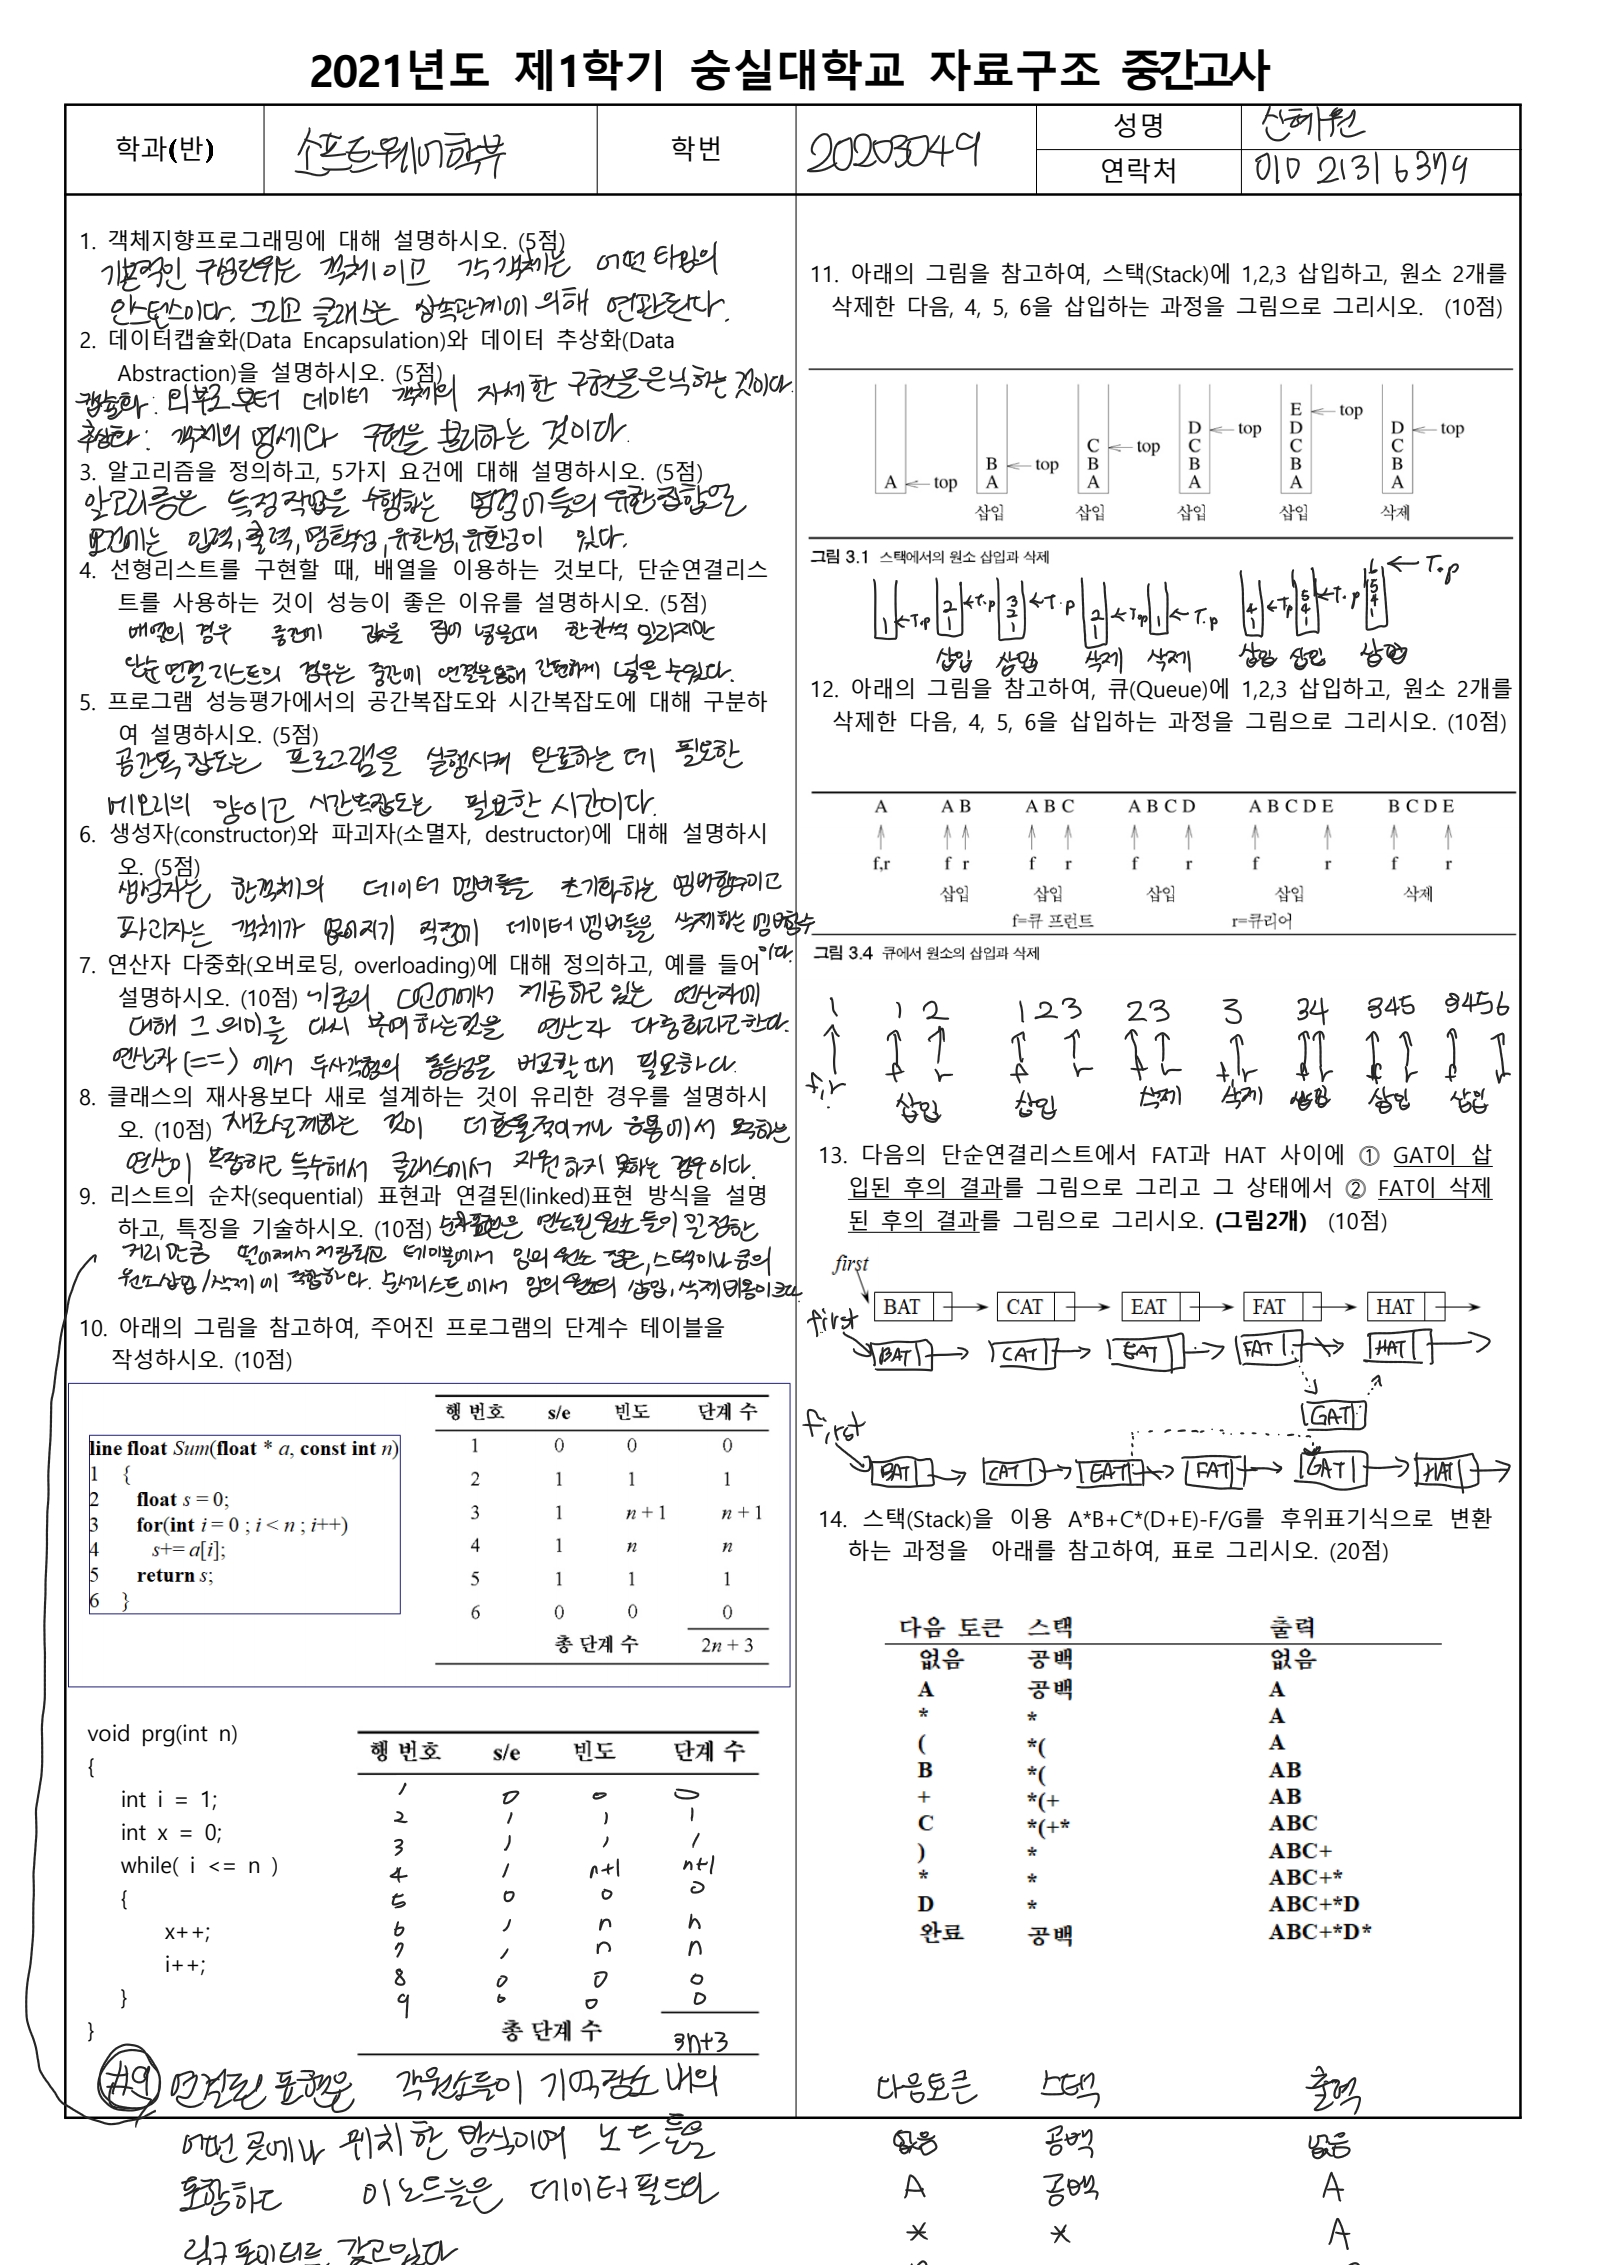 2021년도 제1학기 숭실대학교 자료구조 중간고사
학과(반) 소프트웨어학부 학번 20203049 성명 신혜원
연락처 010 2131 6379
1. 객체지향프로그래밍에 대해 설명하시오. (5점)
기본적인 구성단위는 객체이고 각 객체는 어떤 타입의
인스턴스이다. 그리고 클래스는 상속관계에 의해 연관된다.
2. 데이터캡슐화(Data Encapsulation)와 데이터 추상화(Data
Abstraction)을 설명하시오. (5점)
캡슐화 : 외부로부터 데이터 객체의 자세한 구현물은닉하는 것이다.
추상화 : 객체의 명세와 구현을 분리하는 것이다.
3. 알고리즘을 정의하고, 5가지 요건에 대해 설명하시오. (5점)
알고리즘은 특정작업을 수행하는 명령어들의 유한집합으로
요건에는 입력,출력,명확성,유한성,유효성이 있다.
4. 선형리스트를 구현할 때, 배열을 이용하는 것보다, 단순연결리스
트를 사용하는 것이 성능이 좋은 이유를 설명하시오. (5점)
배열의 경우 중간에 값을 집어 넣을때 한칸씩 밀리지만
단순 연결리스트의 경우는 중간이 연결을통해 간편하게 넣을 수있다.
5. 프로그램 성능평가에서의 공간복잡도와 시간복잡도에 대해 구분하
여 설명하시오. (5점)
공간복잡도는 프로그램을 실행시켜 완료하는 데 필요한
메모리의 양이고 시간복잡도는 필요한 시간이다.
6. 생성자(constructor)와 파괴자(소멸자, destructor)에 대해 설명하시
오. (5점)
생성자는 한객체의 데이터 멤버들을 초기화하는 멤버함수이고
파괴자는 객체가 없어지기 직전에 데이터 멤버들을 삭제하는 멤버함수
이다.
7. 연산자 다중화(오버로딩, overloading)에 대해 정의하고, 예를 들어
설명하시오. (10점) 기존의 C언어에서 제공하고 있는 연산자에
대해 그 의미를 다시 부여하는것을 연산자 다중화라고한다.
연산자 (==) 에서 두사각형의 동등성을 비교할 때 필요하다.
8. 클래스의 재사용보다 새로 설계하는 것이 유리한 경우를 설명하시
오. (10점) 새로설계하는 것이 더효율적이거나 응용에서 요구하는
연산이 복잡하고 특수해서 클래스에서 지원하지 못하는 경우이다.
9. 리스트의 순차(sequential) 표현과 연결된(linked)표현 방식을 설명
하고, 특징을 기술하시오. (10점) 순차표현은 연속된 원소들이 일정한
거리만큼 떨어져서 저장되고 테이블에서 임의 원소 접근,스택이나 큐의
원소삽입/삭제에 적합하다. 순서리스트에서 임의 원소의 삽입,삭제비용이크다.
10. 아래의 그림을 참고하여, 주어진 프로그램의 단계수 테이블을
작성하시오. (10점)
line float Sum(float * a, const int n)
1 {
2 float s = 0;
3 for(int i = 0 ; i < n ; i++)
4 s+= a[i];
5 return s;
6 }
행 번호 s/e 빈도 단계 수
1 0 0 0
2 1 1 1
3 1 n + 1 n + 1
4 1 n n
5 1 1 1
6 0 0 0
총 단계 수 2n + 3
void prg(int n)
{
int i = 1;
int x = 0;
while( i <= n )
{
x++;
i++;
}
}
행 번호 s/e 빈도 단계 수
1 0 0 0
2 1 1 1
3 1 1 1
4 1 n+1 n+1
5 0 0 0
6 1 n n
7 1 n n
8 0 0 0
9 0 0 0
총 단계 수 3n+3
#9 연결된 표현은 각원소들이 기억장소 내의
어떤 곳에나 위치한 방식이며 노드들을
포함하고 이 노드들은 데이터 필드와
링크 포인터를 갖고있다
11. 아래의 그림을 참고하여, 스택(Stack)에 1,2,3 삽입하고, 원소 2개를
삭제한 다음, 4, 5, 6을 삽입하는 과정을 그림으로 그리시오. (10점)
A top
B A top 삽입
C B A top 삽입
D C B A top 삽입
E D C B A top 삽입
D C B A top 삭제
그림 3.1 스택에서의 원소 삽입과 삭제
1 Top
2 1 Top 삽입
3 2 1 Top 삽입
2 1 Top 삭제
1 Top 삭제
4 1 Top 삽입
5 4 1 Top 삽입
6 5 4 1 Top 삽입
12. 아래의 그림을 참고하여, 큐(Queue)에 1,2,3 삽입하고, 원소 2개를
삭제한 다음, 4, 5, 6을 삽입하는 과정을 그림으로 그리시오. (10점)
A A B A B C A B C D A B C D E B C D E
f,r f r f r f r f r f r
삽입 삽입 삽입 삽입 삭제
f=큐 프런트 r=큐리어
그림 3.4 큐에서 원소의 삽입과 삭제
1 1 2 1 2 3 2 3 3 34 345 3456
f,r f r f r f r f r f r f r f r
삽입 삽입 삭제 삭제 삽입 삽입 삽입
13. 다음의 단순연결리스트에서 FAT과 HAT 사이에 ① GAT이 삽
입된 후의 결과를 그림으로 그리고 그 상태에서 ② FAT이 삭제
된 후의 결과를 그림으로 그리시오. (그림2개) (10점)
first
BAT CAT EAT FAT HAT
first
BAT CAT EAT FAT HAT
GAT
first
BAT CAT EAT FAT GAT HAT
14. 스택(Stack)을 이용 A*B+C*(D+E)-F/G를 후위표기식으로 변환
하는 과정을 아래를 참고하여, 표로 그리시오. (20점)
다음 토큰 스택 출력
없음 공백 없음
A 공백 A
* * A
( *( A
B *( AB
+ *(+ AB
C *(+* ABC
) * ABC+
* * ABC+*
D * ABC+*D
완료 공백 ABC+*D*
다음토큰 스택 출력
없음 공백 없음
A 공백 A
* * A